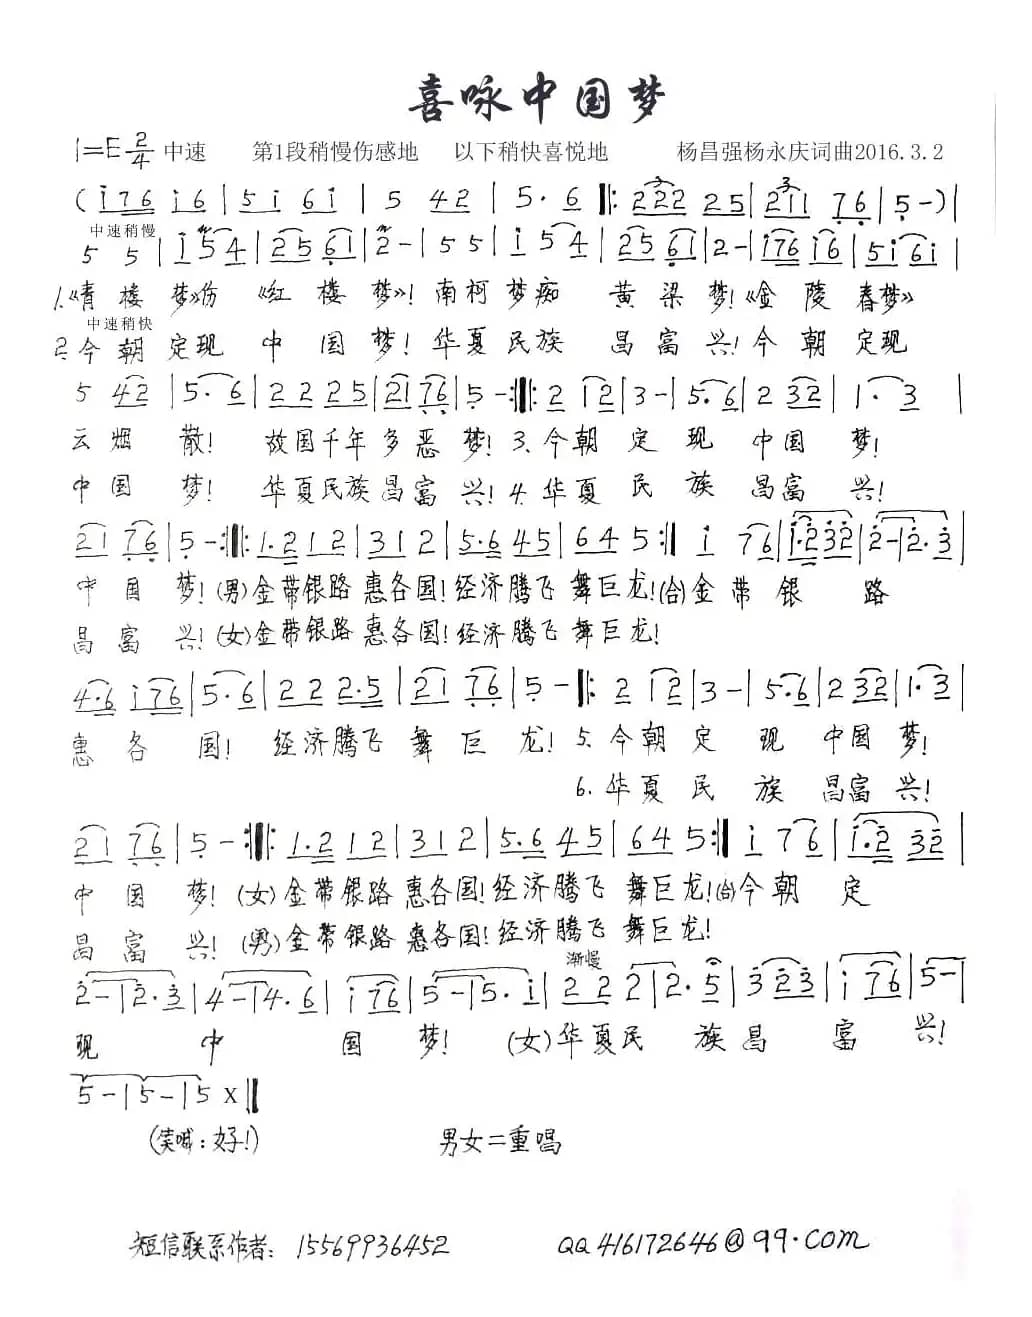 喜咏中国梦
1=E 2/4 中速 第1段稍慢伤感地 以下稍快喜悦地 杨昌强杨永庆词曲2016.3.2
(i76 i6|5i 6i|5 42|5·6‖:222 25|2ii 76|5-)|
中速稍慢
5 5|i 54|25 61|2-|5 5|i 54|25 61|2-|i76 i6|5i 6i|
1.《青楼梦》伤《红楼梦》!南柯梦痴 黄梁梦!《金陵春梦》
中速稍快
2.今朝定现 中国梦!华夏民族 昌富兴!今朝定现
5 42|5·6|22 25|21 76|5-:‖:2 12|3-|5·6|2 32|1·3|
云烟散! 故国千年多恶梦!3.今朝定现中国梦!
中国梦! 华夏民族昌富兴!4.华夏民族昌富兴!
21 76|5-:‖:1·2 12|31 2|5·6 45|64 5:‖i 76|i·2 32|2-|2·3|
中国梦!(男)金带银路惠各国!经济腾飞舞巨龙!(合)金带银路
昌富兴!(女)金带银路惠各国!经济腾飞舞巨龙!
4·6 i76|5·6|22 2·5|21 76|5-‖:2 12|3-|5·6|2 32|1·3|
惠各国! 经济腾飞舞巨龙!5.今朝定现中国梦!
6.华夏民族昌富兴!
21 76|5-:‖:1·2 12|31 2|5·6 45|64 5:‖i 76|i·2 32|
中国梦!(女)金带银路惠各国!经济腾飞舞巨龙!(合)今朝定
昌富兴!(男)金带银路惠各国!经济腾飞舞巨龙!
渐慢
2-|2·3|4-|4·6|i 76|5-|5·i|22 2|2·5|3 23|i 76|5-|
现中国梦!(女)华夏民族昌富兴!
5-|5-|5 X‖
(笑喊:好!) 男女二重唱
短信联系作者:15569936452 QQ416172646@99.com